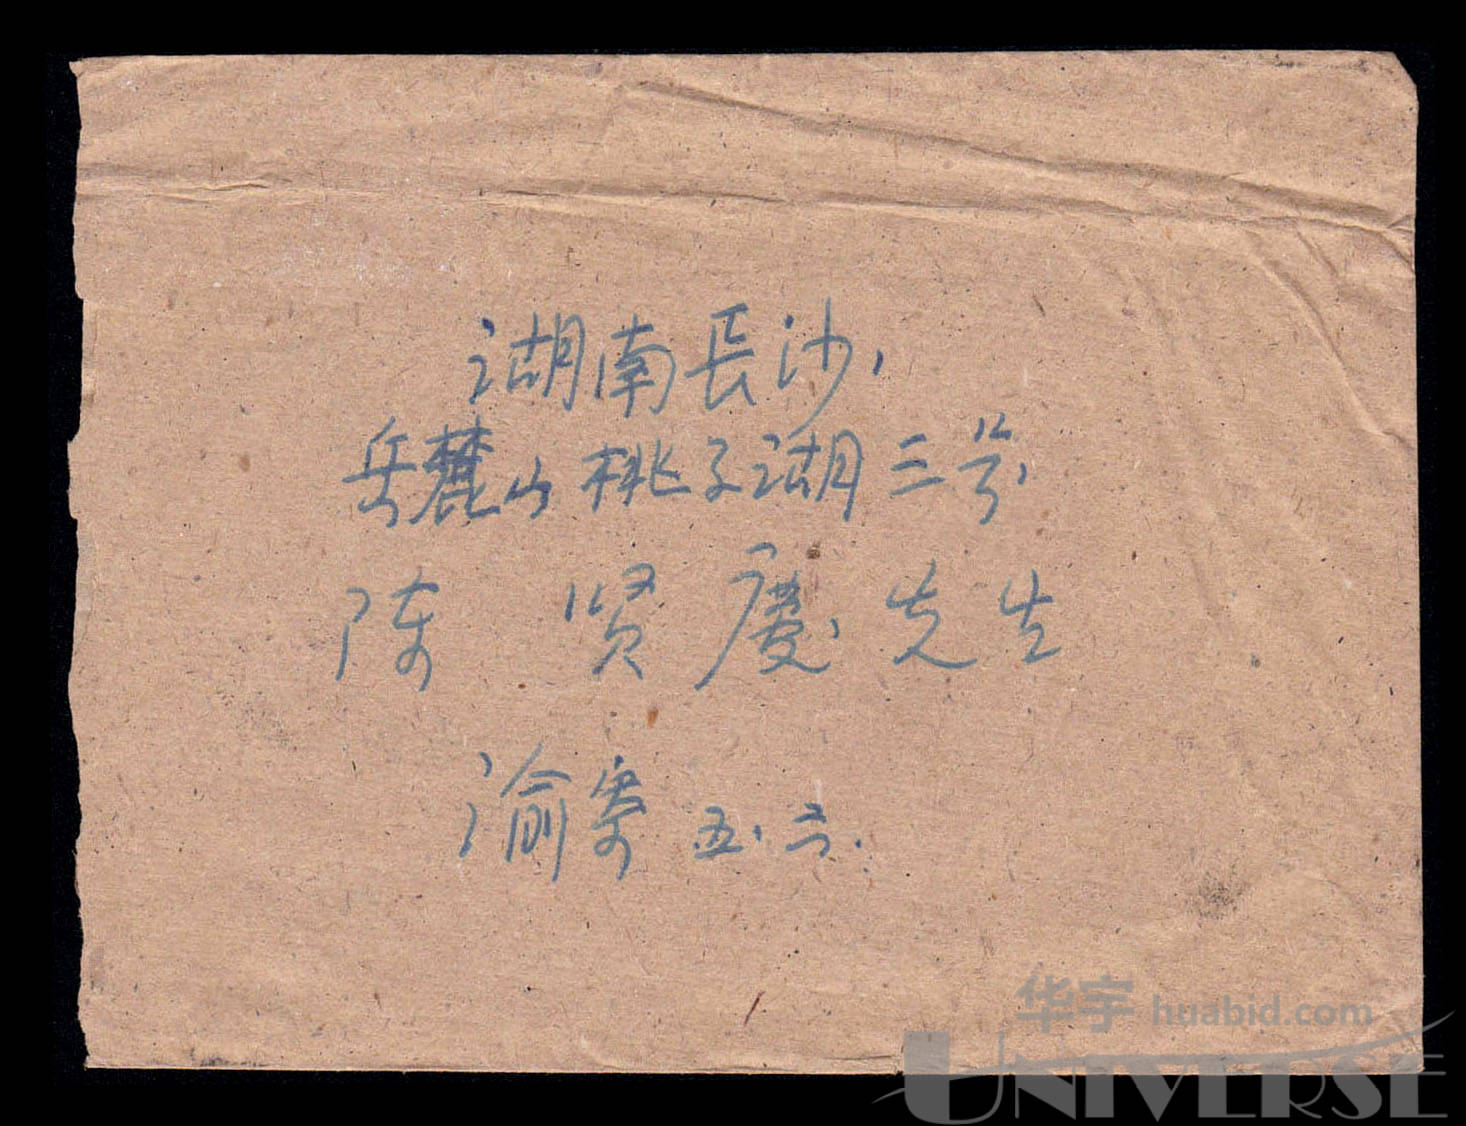 湖南長沙,
岳麓山桃子湖三号,
陈贤慶先生
渝寄 五.六.
华宇 huabid.com
UNIVERSE